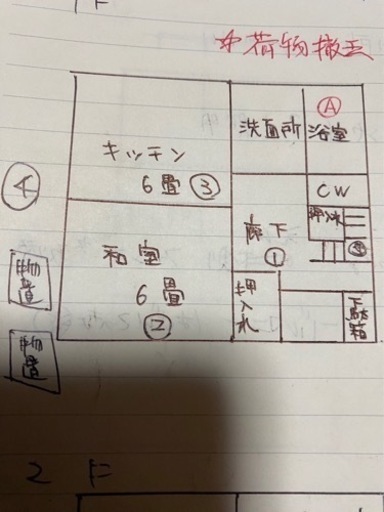 ☆荷物撤去
Ⓐ
洗面所
浴室
キッチン
6畳 ③
④
CW
押入
廊下
①
和室
6畳
②
押入れ
下駄箱
物置
物置
2F